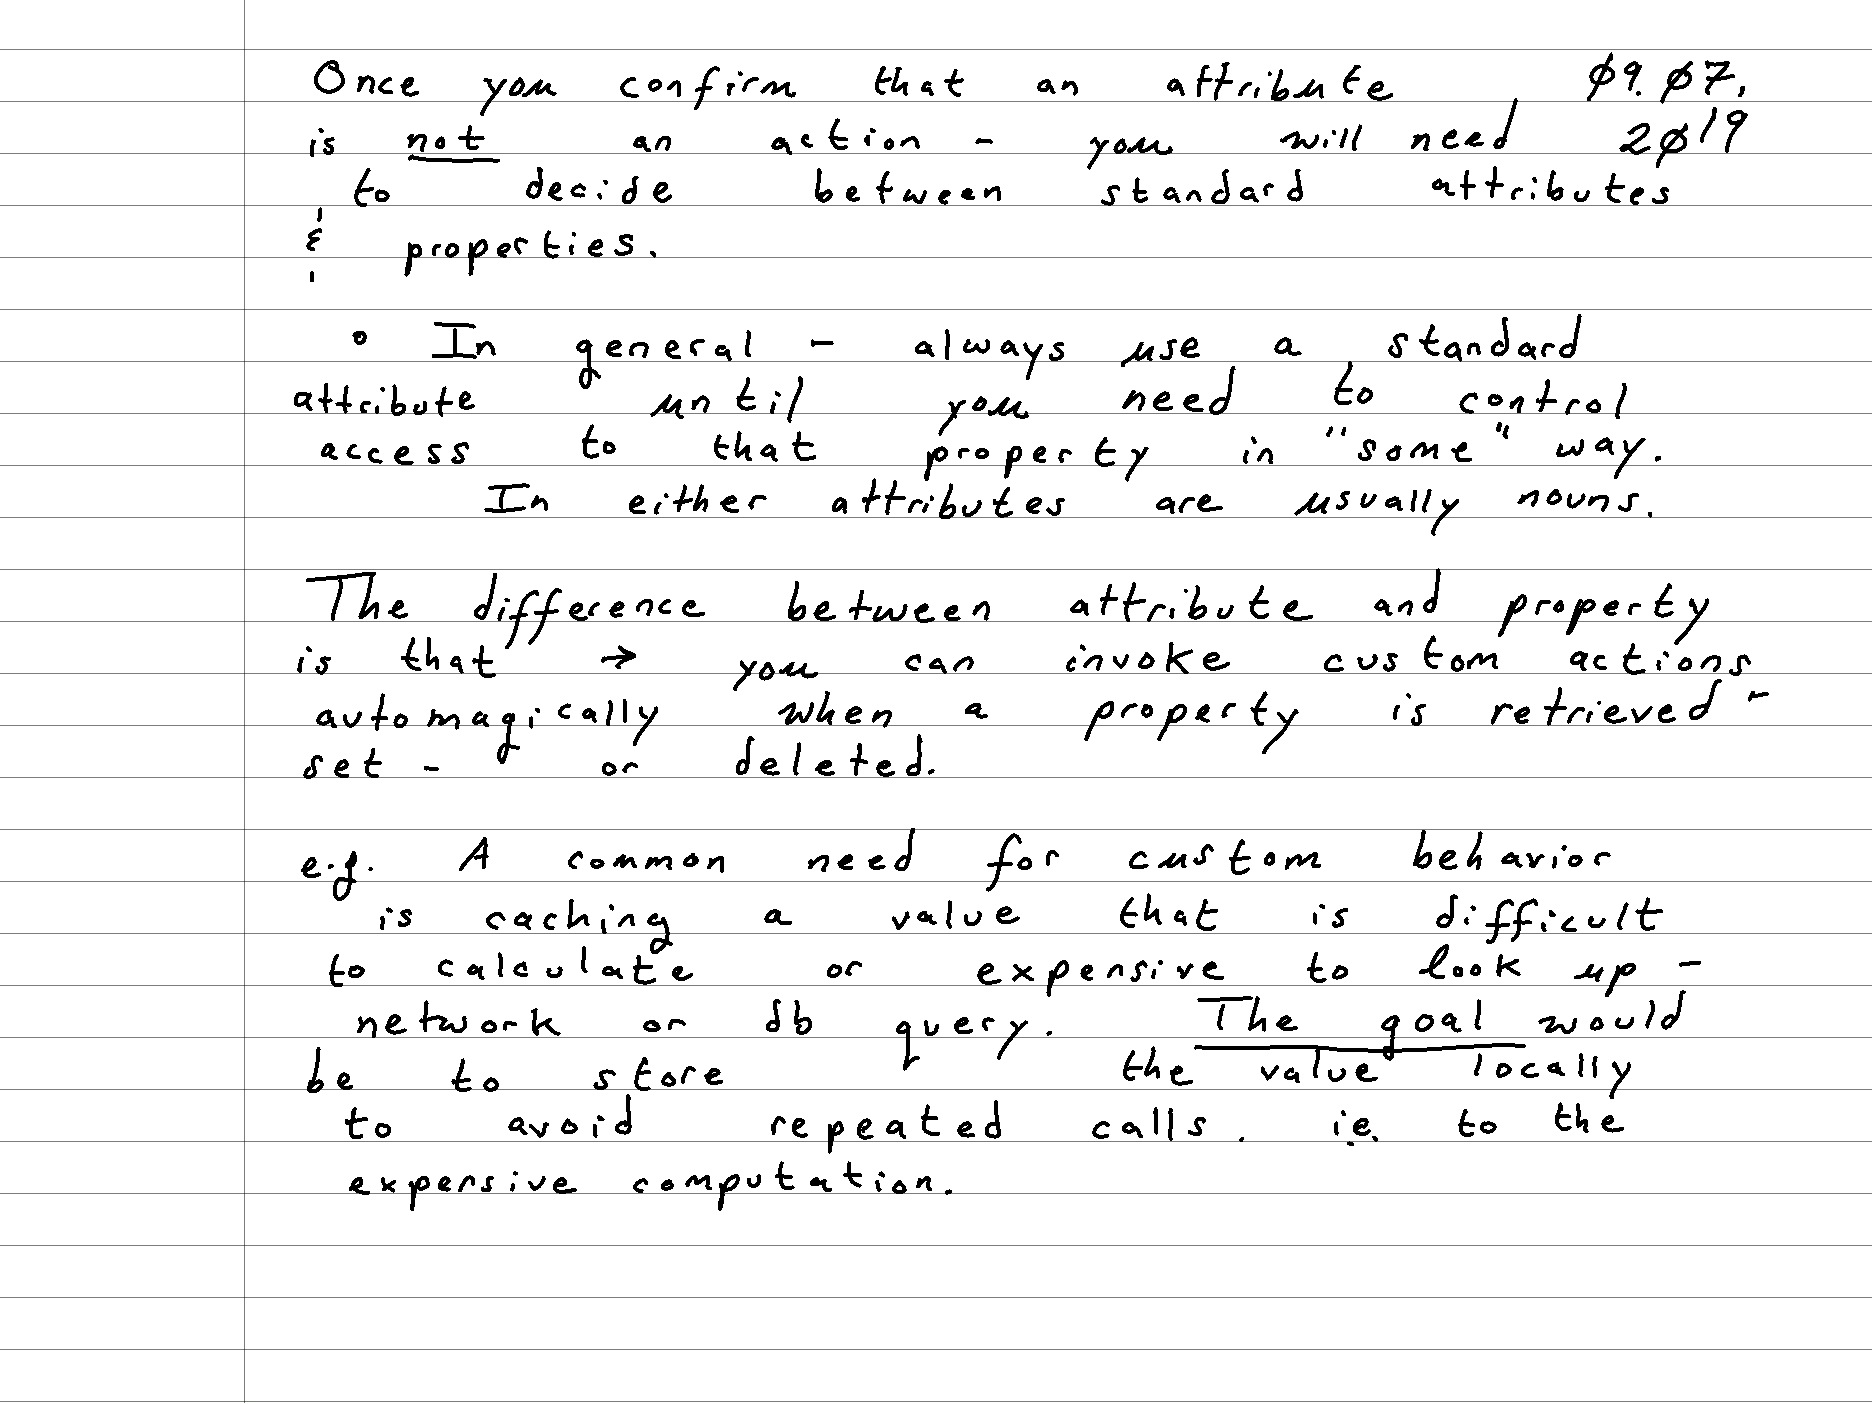 Once you confirm that an attribute ø9. ø7,
is not an action - you will need 2ø19
to decide between standard attributes
& properties.
• In general - always use a standard
attribute until you need to control
access to that property in "some" way.
In either attributes are usually nouns.
The difference between attribute and property
is that → you can invoke custom actions
automagically when a property is retrieved -
set - or deleted.
e.g. A common need for custom behavior
is caching a value that is difficult
to calculate or expensive to look up -
network or db query. The goal would
be to store the value locally
to avoid repeated calls. i.e. to the
expensive computation.